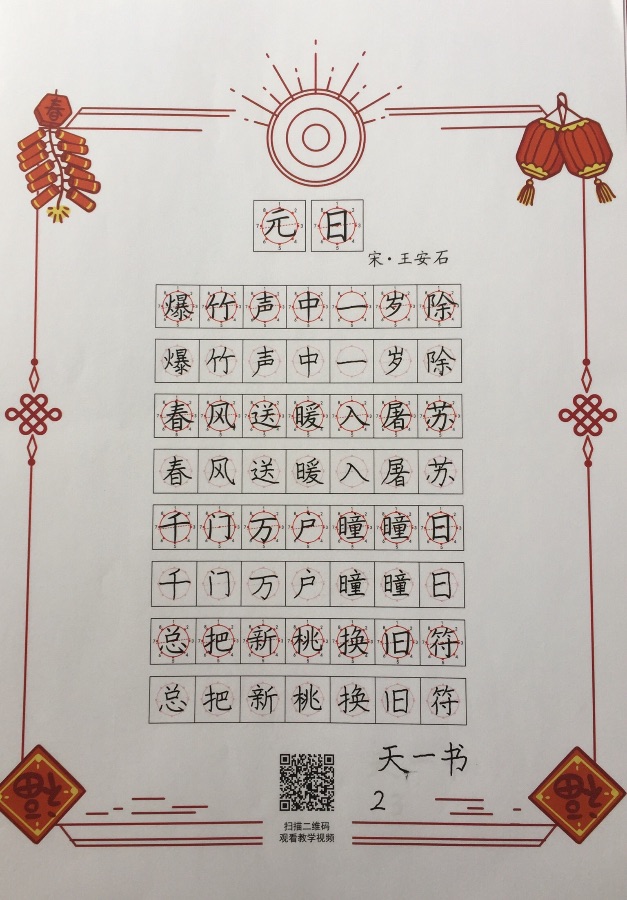 春
元日
宋·王安石
爆竹声中一岁除
爆竹声中一岁除
春风送暖入屠苏
春风送暖入屠苏
千门万户曈曈日
千门万户瞳瞳日
总把新桃换旧符
总把新桃换旧符
天一书
2
扫描二维码
观看教学视频
福
福